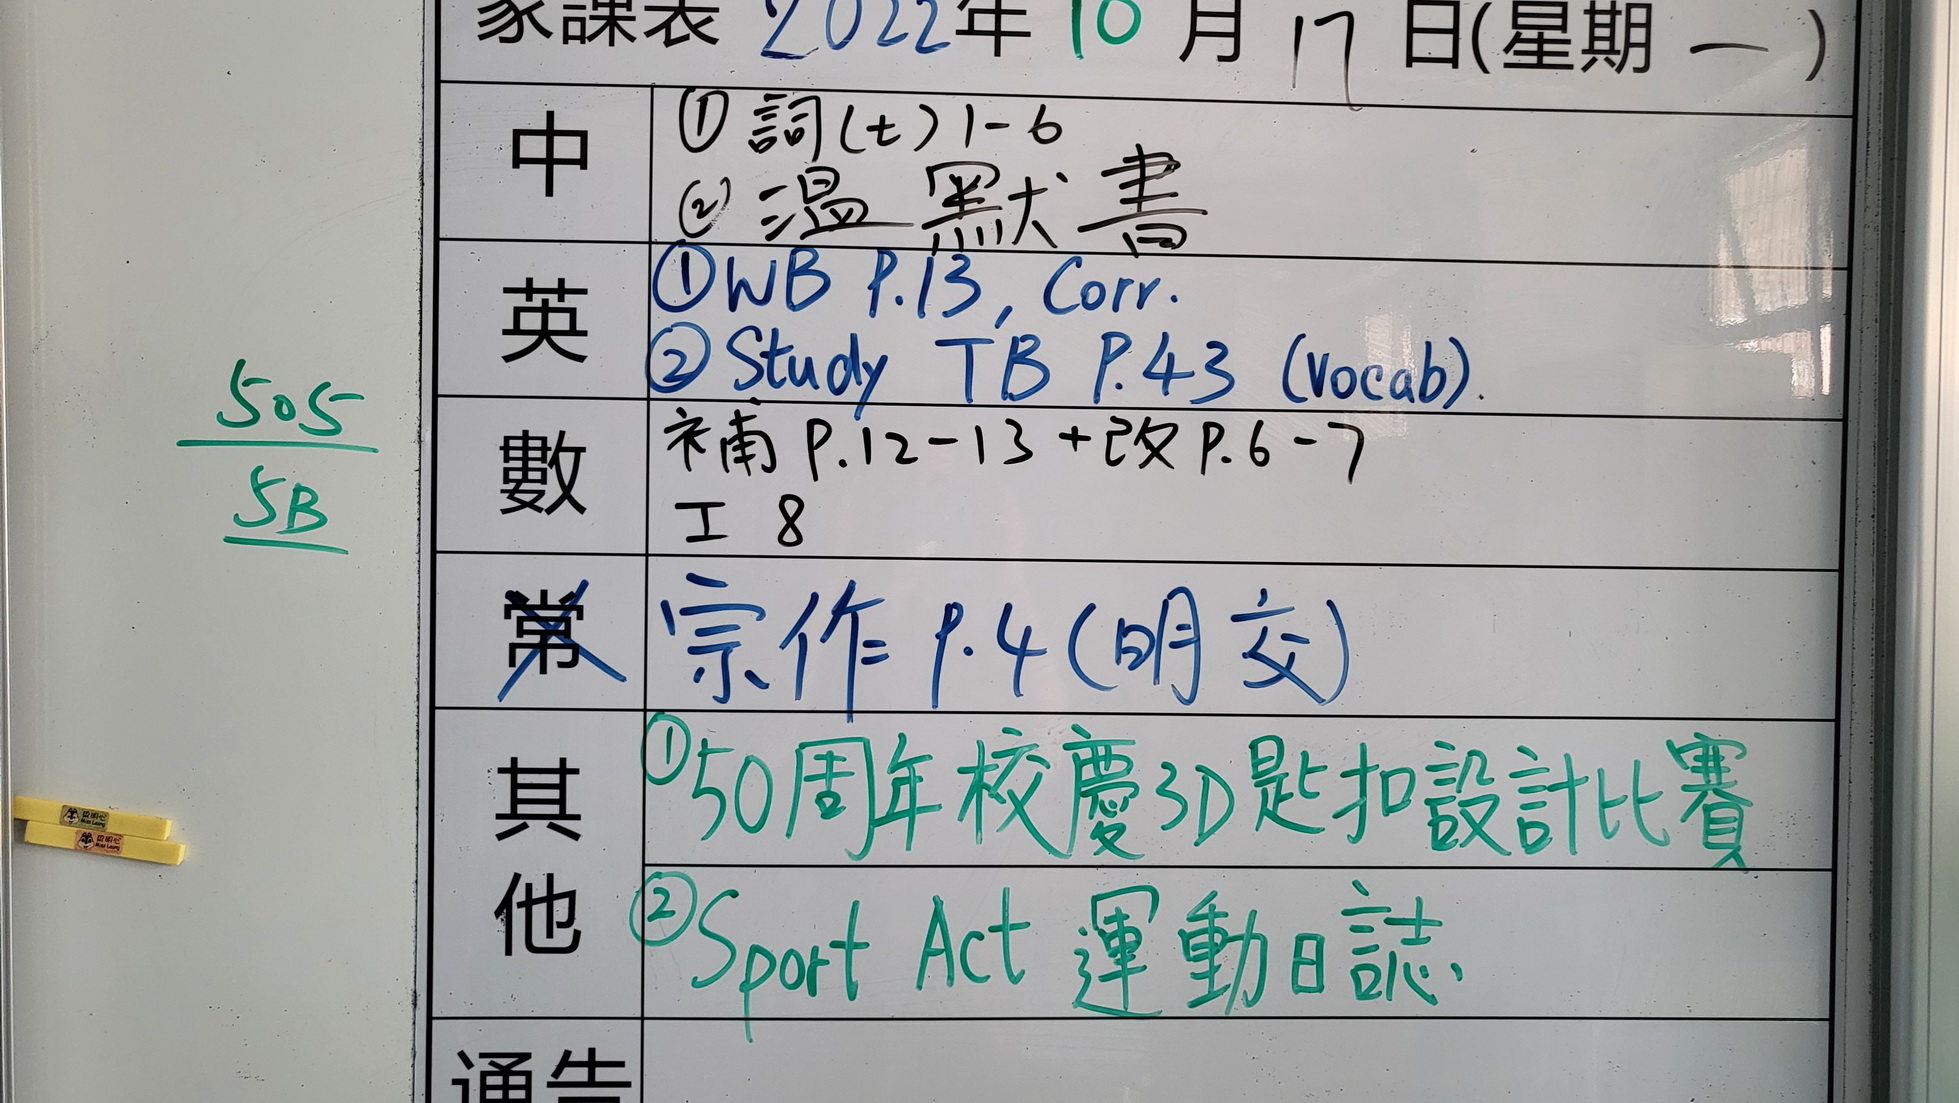 家課表 2022年 10 月 17 日(星期 一 )
中
① 詞(七) 1-6
② 溫 默書
英
① WB P.13, Corr.
② Study TB P.43 (Vocab).
數
補 P.12-13 + 改 P.6-7
工 8
常
宗作 P.4 (明交)
其他
① 50周年校慶3D匙扣設計比賽
② Sport Act 運動日誌
通告
505
5B